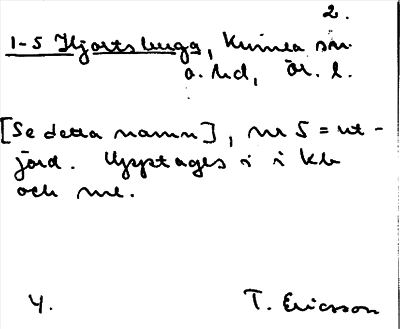 2.
1-5 Hjortsberga, Kumla sn
a. hd, Ör. l.
[Se detta namn], nr 5 = ut-
jord. Upptages i kb
och ml.
4. T. Ericsson